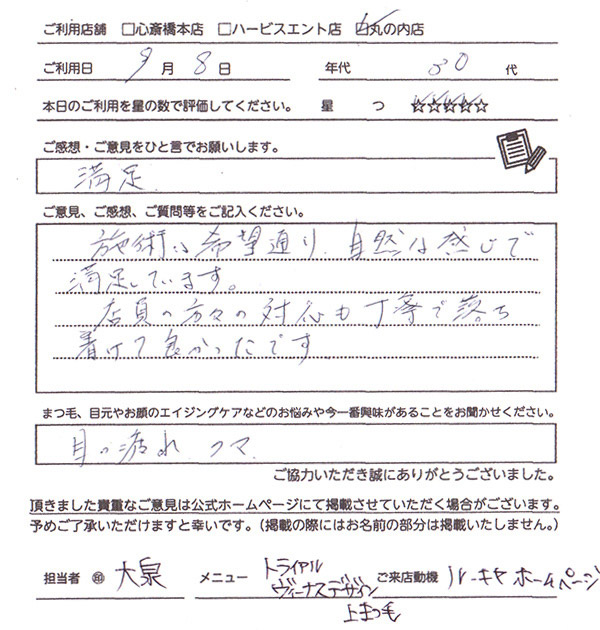 ご利用店舗 □心斎橋本店 □ハービスエント店 ☑丸の内店
ご利用日 9月8日 年代 30代
本日のご利用を星の数で評価してください。 星 つ ☆☆☆☆☆
ご感想・ご意見をひと言でお願いします。
満足
ご意見、ご感想、ご質問等をご記入ください。
施術は希望通り、自然な感じで
満足しています。
店員の方々の対応も丁寧で落ち
着けて良かったです
まつ毛、目元やお顔のエイジングケアなどのお悩みや今一番興味があることをお聞かせください。
目の疲れ クマ
ご協力いただき誠にありがとうございました。
頂きました貴重なご意見は公式ホームページにて掲載させていただく場合がございます。
予めご了承いただけますと幸いです。(掲載の際にはお名前の部分は掲載いたしません。)
担当者 ㊞ 大泉 メニュー トライアル ヴィーナスデザイン 上まつ毛 ご来店動機 ルーキヤ ホームページ